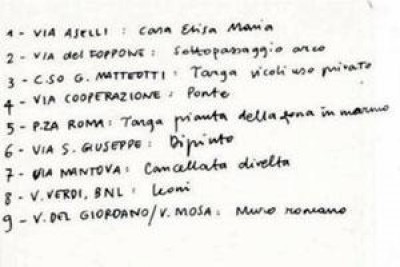 1 - VIA ASELLI : Casa Elisa Maria
2 - VIA del FOPPONE : Sottopassaggio arco
3 - C.SO G. MATTEOTTI : Targa vicoli uso privato
4 - VIA COOPERAZIONE : Ponte
5 - P.ZA ROMA : Targa pianta della zona in marmo
6 - VIA S. GIUSEPPE : Dipinto
7 - VIA MANTOVA : Cancellata divelta
8 - V. VERDI, BNL : Leoni
9 - V. DEL GIORDANO / V. MOSA : Muro romano